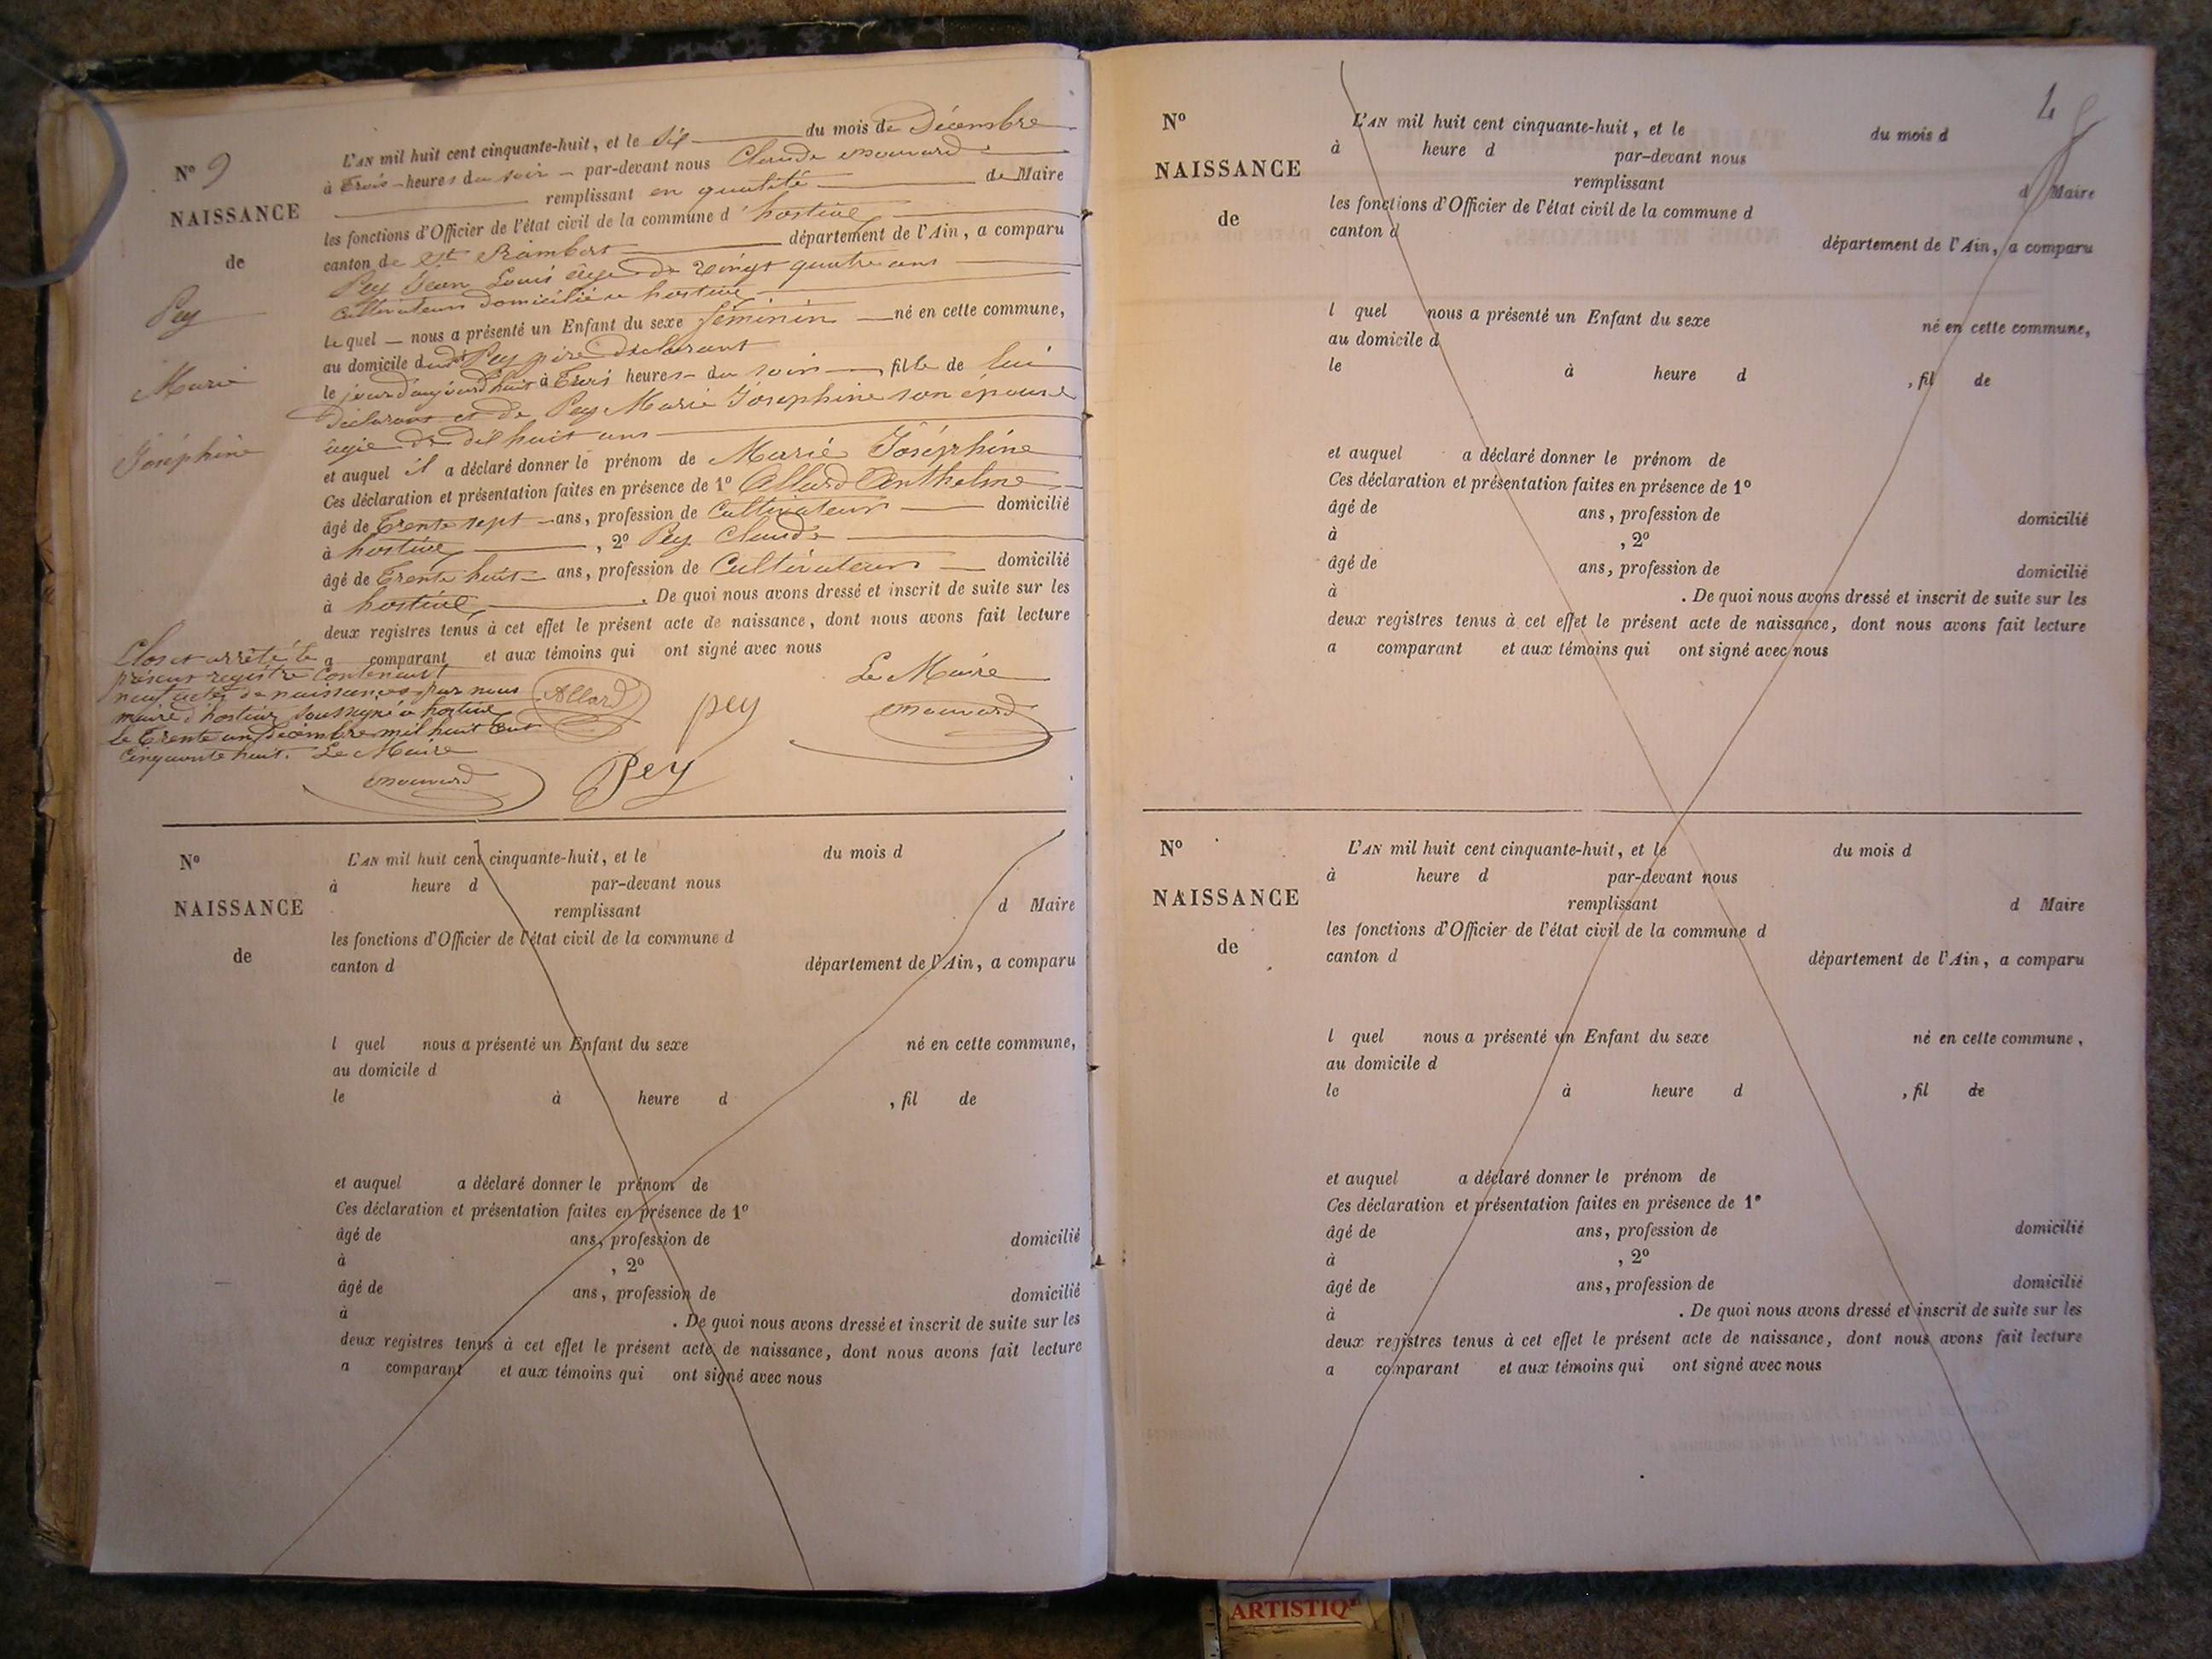 N.º 9
NAISSANCE
de
Pey
Marie
Joséphine
L'AN mil huit cent cinquante-huit, et le dix du mois de Décembre
à Trois heures du soir par-devant nous Claude
remplissant en qualité de Maire
les fonctions d'Officier de l'état civil de la commune d'hostiaz
canton de St Rambert département de l'Ain, a comparu
Pey Jean Louis âgé de vingt quatre ans
Cultivateur domicilié a hostiaz
le quel nous a présenté un Enfant du sexe féminin né en cette commune,
au domicile dudit Pey père déclarant
le jour d'aujourd'huit à Trois heures du soir fille de lui
Déclarant et de Pey Marie Joséphine son épouse
âgée de dil huit ans
et auquel il a déclaré donner le prénom de Marie Joséphine
Ces déclaration et présentation faites en présence de 1º Allard Anthelme
âgé de Trente sept ans, profession de Cultivateur domicilié
à hostiaz, 2º Pey Claude
âgé de Trente huit ans, profession de Cultivateur domicilié
à hostiaz. De quoi nous avons dressé et inscrit de suite sur les
deux registres tenus à cet effet le présent acte de naissance, dont nous avons fait lecture
a comparant et aux témoins qui ont signé avec nous
Clos et arrêté le
présent registre Contenant
neuf actes de naissances par nous
maire d'hostiaz soussigné a hostiaz
le Trente un Décembre mil huit cent
Cinquante huit. Le Maire
Allard
pey
Le Maire
Pey
Nº
NAISSANCE
de
L'AN mil huit cent cinquante-huit, et le du mois d
à heure d par-devant nous
remplissant d Maire
les fonctions d'Officier de l'état civil de la commune d
canton d département de l'Ain, a comparu
l quel nous a présenté un Enfant du sexe né en cette commune,
au domicile d
le à heure d , fil de
et auquel a déclaré donner le prénom de
Ces déclaration et présentation faites en présence de 1º
âgé de ans, profession de domicilié
à , 2º
âgé de ans, profession de domicilié
à . De quoi nous avons dressé et inscrit de suite sur les
deux registres tenus à cet effet le présent acte de naissance, dont nous avons fait lecture
a comparant et aux témoins qui ont signé avec nous
4
Nº
NAISSANCE
de
L'AN mil huit cent cinquante-huit, et le du mois d
à heure d par-devant nous
remplissant d Maire
les fonctions d'Officier de l'état civil de la commune d
canton d département de l'Ain, a comparu
l quel nous a présenté un Enfant du sexe né en cette commune,
au domicile d
le à heure d , fil de
et auquel a déclaré donner le prénom de
Ces déclaration et présentation faites en présence de 1º
âgé de ans, profession de domicilié
à , 2º
âgé de ans, profession de domicilié
à . De quoi nous avons dressé et inscrit de suite sur les
deux registres tenus à cet effet le présent acte de naissance, dont nous avons fait lecture
a comparant et aux témoins qui ont signé avec nous
Nº
NAISSANCE
de
L'AN mil huit cent cinquante-huit, et le du mois d
à heure d par-devant nous
remplissant d Maire
les fonctions d'Officier de l'état civil de la commune d
canton d département de l'Ain, a comparu
l quel nous a présenté un Enfant du sexe né en cette commune,
au domicile d
le à heure d , fil de
et auquel a déclaré donner le prénom de
Ces déclaration et présentation faites en présence de 1º
âgé de ans, profession de domicilié
à , 2º
âgé de ans, profession de domicilié
à . De quoi nous avons dressé et inscrit de suite sur les
deux registres tenus à cet effet le présent acte de naissance, dont nous avons fait lecture
a comparant et aux témoins qui ont signé avec nous
ARTISTIQ